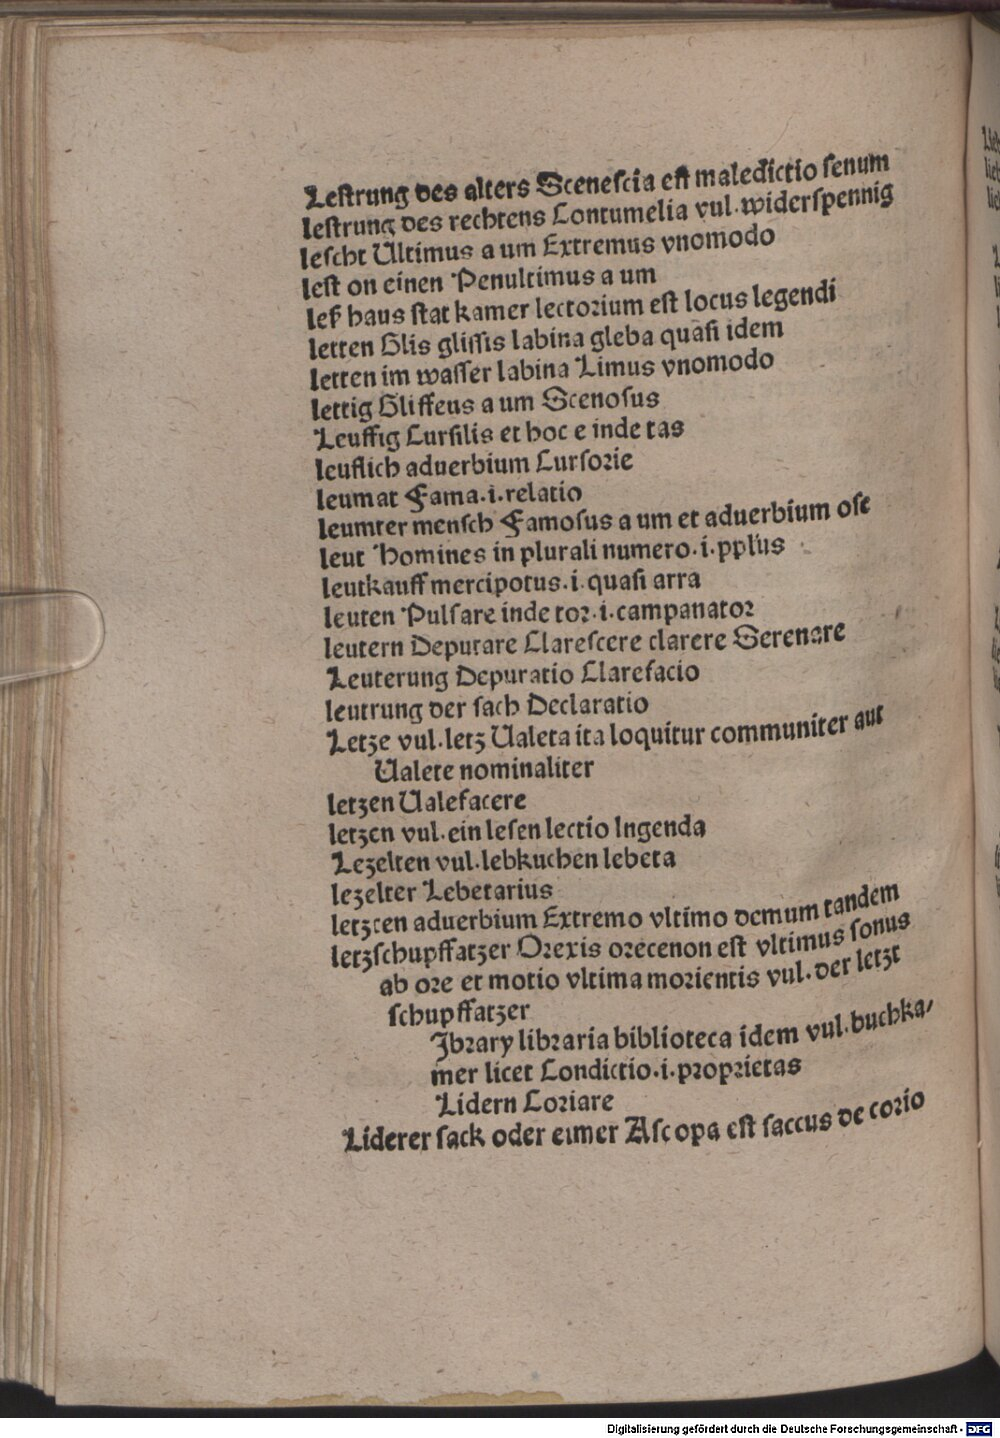 Leſtrung des alters Sceneſcia eſt maledictio ſenum
leſtrung des rechtens Contumelia vul.widerſpennig
leſcht Ultimus a um Extremus vnomodo
leſt on einen Penultimus a um
leß haus ſtat kamer lectorium eſt locus legendi
letten Glis gliſſis labina gleba quaſi idem
letten im waſſer labina Limus vnomodo
lettig Gliſſeus a um Scenoſus
Leuffig Curſilis et hoc e inde tas
leuflich aduerbium Curſorie
leumat Fama.i.relatio
leumter menſch Famoſus a um et aduerbium oſe
leut Homines in plurali numero.i.ppl'us
leutkauff mercipotus.i.quaſi arra
leuten Pulſare inde tor.i.campanator
leutern Depurare Clareſcere clarere Serenare
Leuterung Depuratio Clarefacio
leutrung der ſach Declaratio
Letze vul.letz Ualeta ita loquitur communiter aut
Ualete nominaliter
letzen Ualefacere
letzen vul.ein leſen lectio lngenda
Lezelten vul.lebkuchen lebeta
lezelter Lebetarius
letzten aduerbium Extremo vltimo demum tandem
letzſchupffatzer Orexis orecenon eſt vltimus ſonus
ab ore et motio vltima morientis vul.der letzt
ſchupffatzer
Jbrary libraria biblioteca idem vul.buchka-
mer licet Condictio.i.proprietas
Lidern Coriare
Liderer ſack oder eimer Aſcopa eſt ſaccus de corio
Digitalisierung gefördert durch die Deutsche Forschungsgemeinschaft - DFG